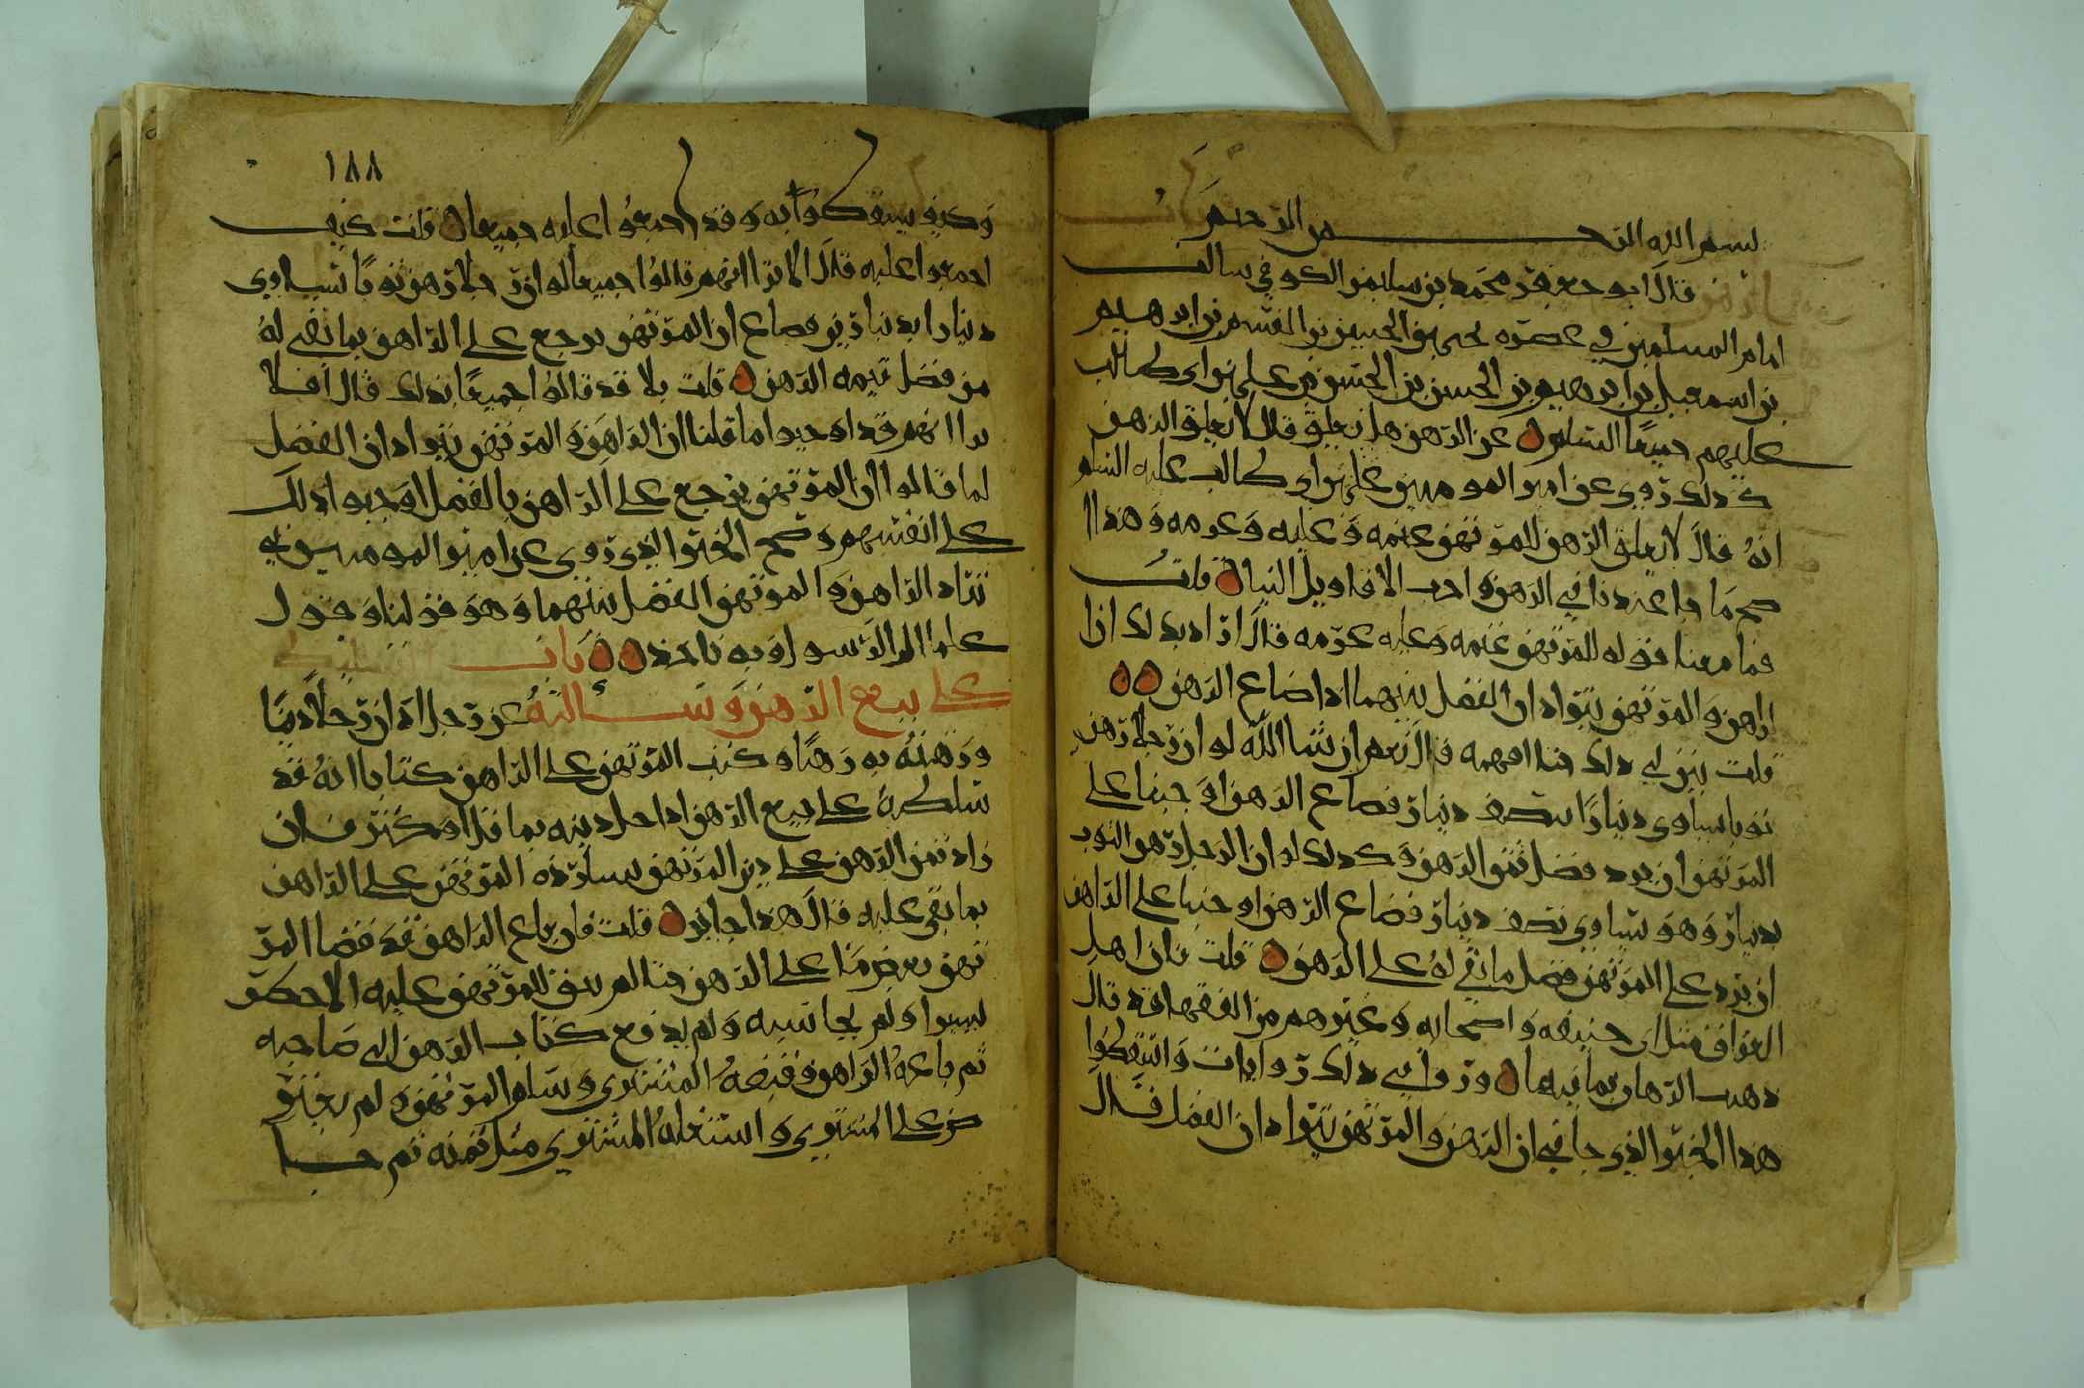 بسم الله الرحمن الرحيم
قال ابو جعفر محمد بن سليمن الكوفي سالت
امام المسلمين في عصره يحيى بن الحسين بن القسم بن ابرهيم
بن اسمعيل بن ابرهيم بن الحسن بن الحسن بن علي بن ابي طالب
عليهم جميعا السلم عن الرهن هل يغلق قال لا يغلق الرهن
كذلك روي عن امير المومنين علي بن ابي طالب عليه السلم
انه قال لا يغلق الرهن للمرتهن غنمه وعليه غرمه وهذا
صح ما جا عندنا في الرهن واحب الاقاويل الينا قلت
فما معنا قوله للمرتهن غنمه وعليه غرمه قال اراد بذلك ان ا
لراهن والمرتهن يترادان الفضل بينهما اذا ضاع الرهن
قلت بين لي ذلك حتا افهمه قال نعم ان شا الله لو ان رجلا رهن
ثوبا يساوي دينارا بنصف دينار فضاع الرهن اوجبنا على
المرتهن ان يرد فضل ثمن الرهن وكذلك لو ان الرجل رهن الثوب
بدينار وهو يساوي نصف دينار فضاع الرهن اوجبنا على الراهن
ان يرد على المرتهن فضل ما بقي له على الرهن قلت فان اهل
العراق مثل ابي حنيفه واصحابه وغيرهم من الفقها قد قال
ذهب الرهان بما فيها وروا في ذلك روايات واسقطوا
هذا الخبر الذي جا في ان الراهن والمرتهن يترادان الفضل فقال
١٨٨
وكيف يسقطوا به وقد اجمعوا عليه جميعا قلت كيف
اجمعوا عليه قال الا ترا انهم قالوا جميعا لو ان رجلا رهن ثوبا يساوي
دينارا بدينارين فضاع ان المرتهن يرجع على الراهن بما بقي له
من فضل قيمه الرهن قلت بلا قد قالوا جميعا بذلك قال افلا
ترا انهم قد اوجبوا ما قلنا ان الراهن والمرتهن يترادان الفضل
لما قالوا ان المرتهن يرجع على الراهن بالفضل اوجبوا ذلك
على انفسهم وصح الخبر الذي روي عن امير المومنين في
تراد الراهن والمرتهن الفضل بينهما وهو قولنا وقول
علما ال الرسول وبه ناخذ باب
على بيع الرهن وسالته عن رجل ادان رجلا دينا
ورهنه به رهنا وكتب المرتهن على الراهن كتابا انه قد
سلطه على بيع الرهن اذا حل دينه بما قل او كثر فان
زاد ثمن الرهن على دين المرتهن المرتهن على الراهن
بما بقي عليه قال هذا جايز قلت فان باع الراهن قد قضا المر
تهن بعض ما على الرهن حتا لم يبق للمرتهن عليه الا
يسيرا ولم يحاسبه ولم يدفع كتاب الرهن الى صاحبه
ثم باعه الراهن وقبضه المشتري وسلم المرتهن ولم يعتر
ض على المشتري واستغله المشتري مثل ثمنه ثم جا